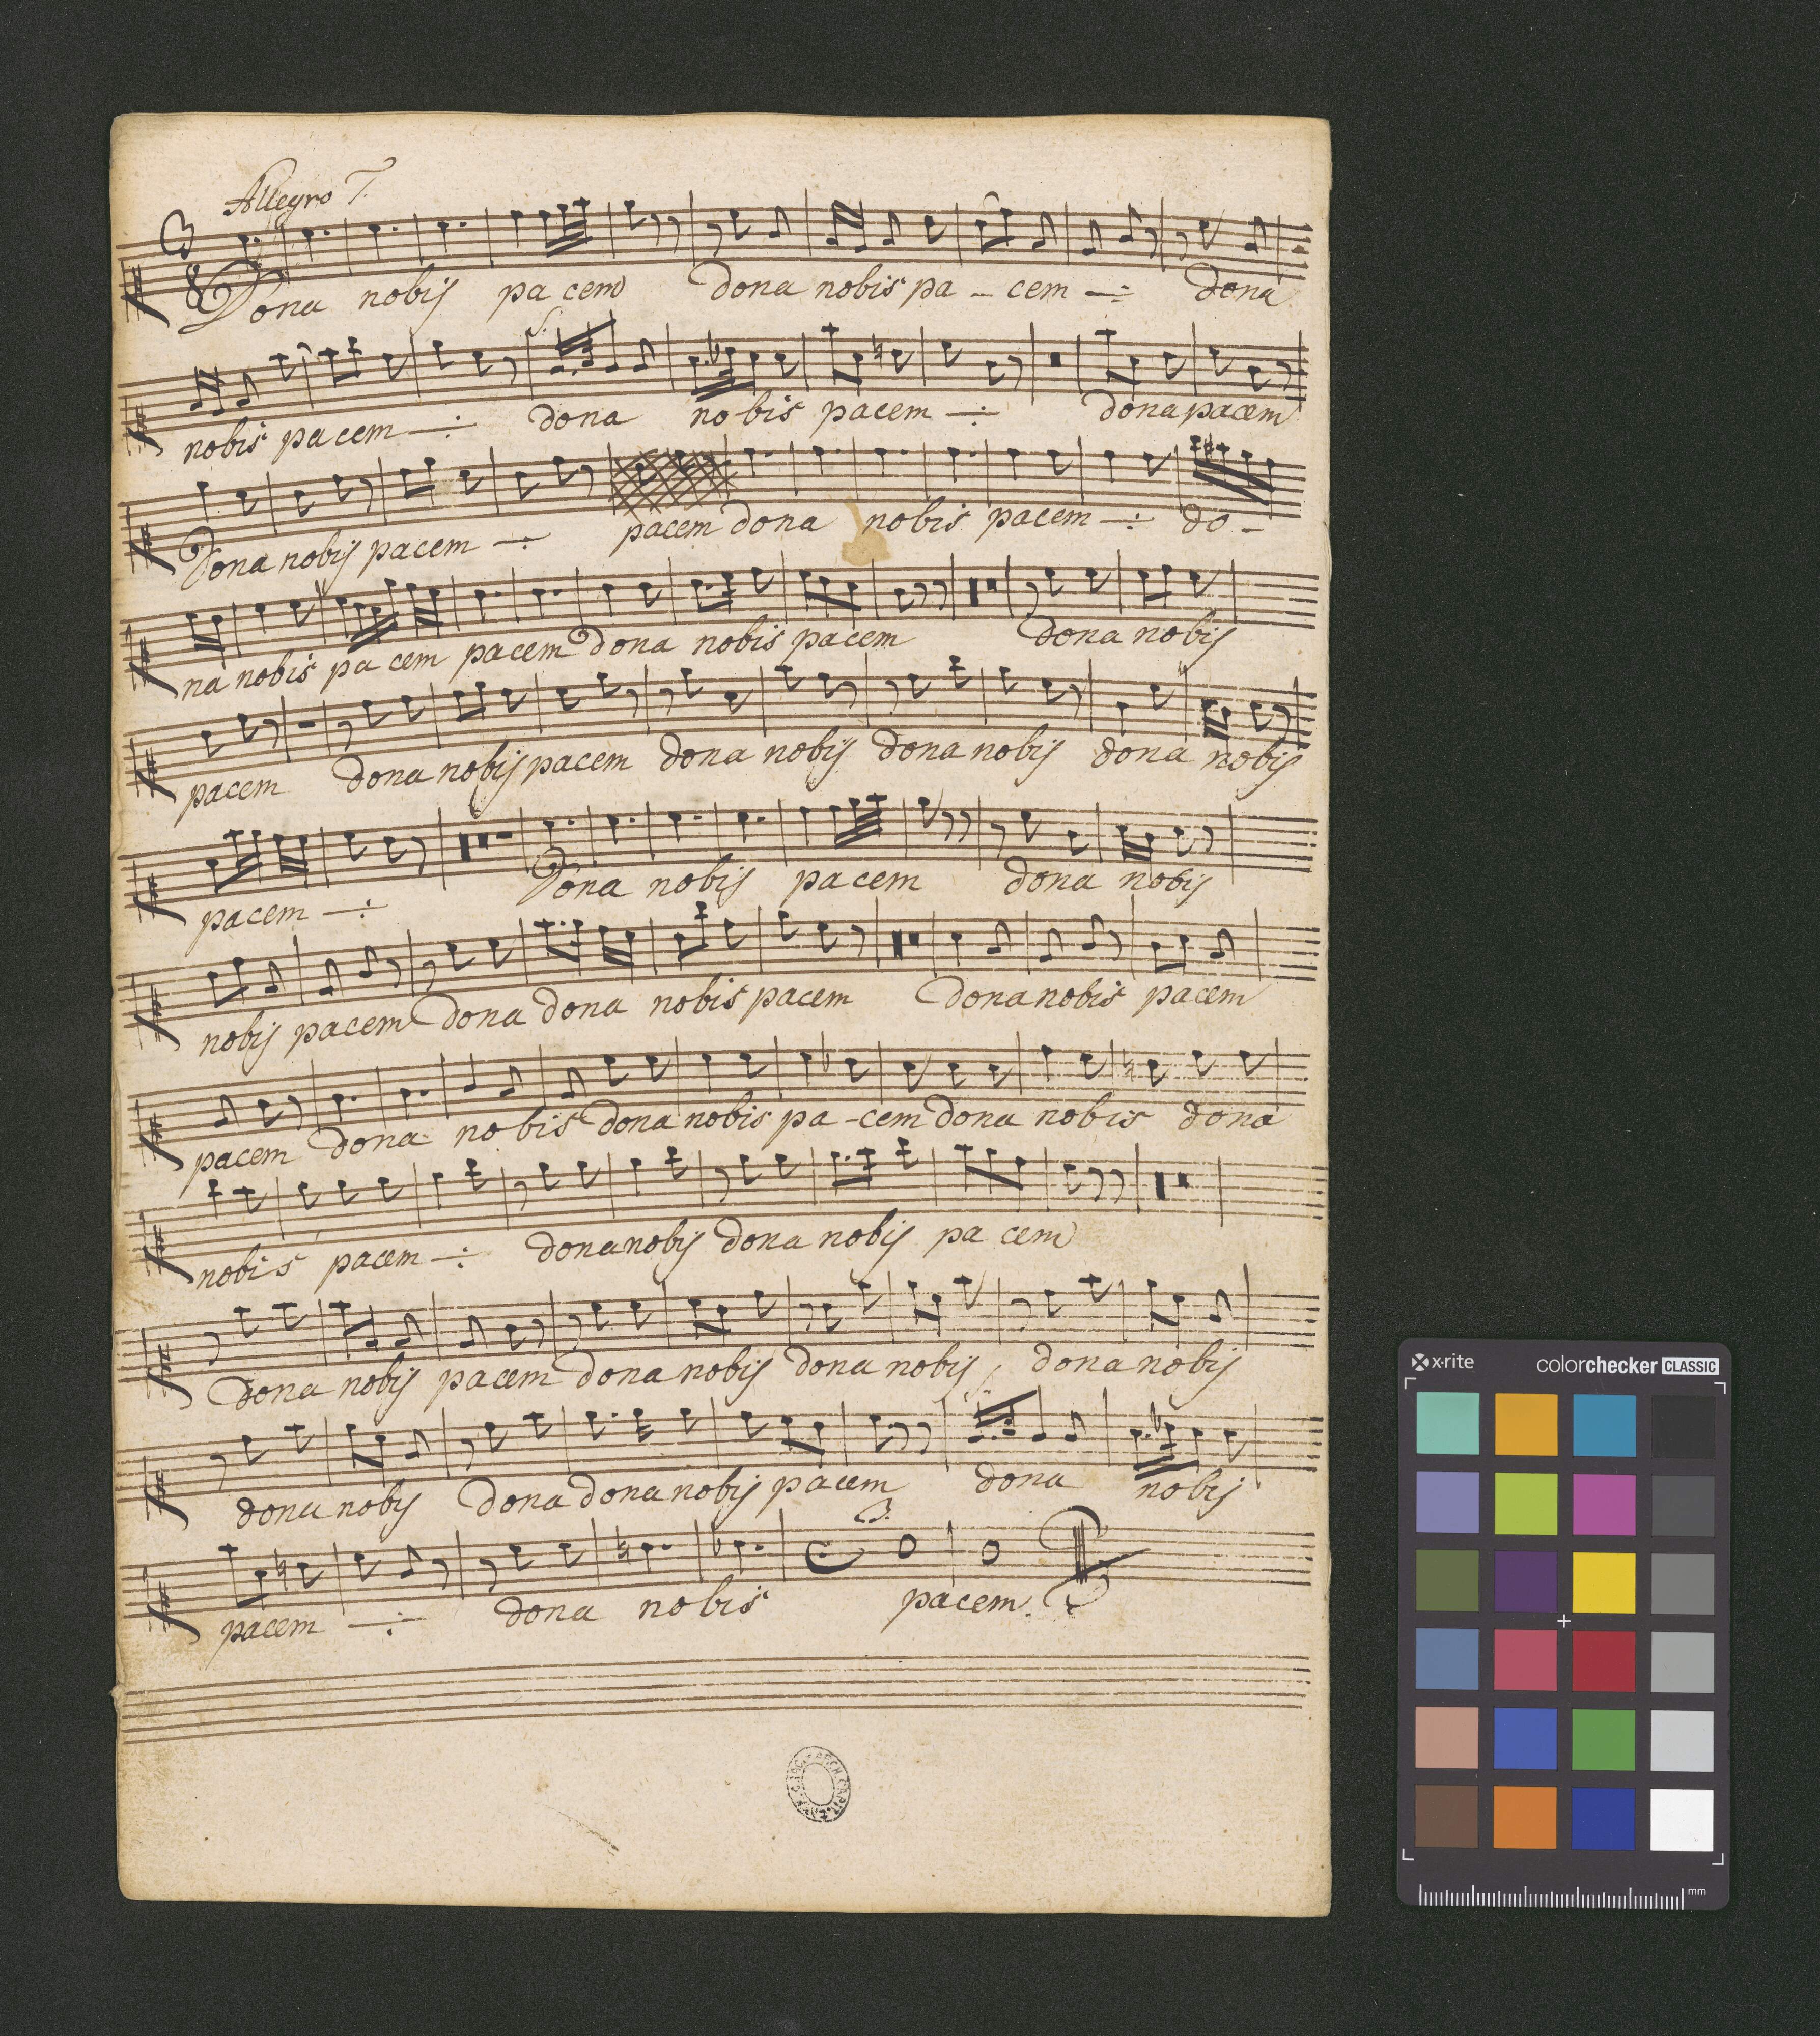 Allegro T.
Dona nobis pa cem dona nobis pa - cem -:- dona
S.
nobis pacem -:- dona no bis pacem -:- dona pacem
Dona nobis pacem -:- pacem dona nobis pacem -:- do -
na nobis pa cem pacem dona nobis pacem dona nobis
pacem dona nobis pacem dona nobis dona nobis dona nobis
pacem -:- Dona nobis pacem dona nobis
nobis pacem dona dona nobis pacem dona nobis pacem
pacem dona no bis dona nobis pa - cem dona nobis dona
nobis pacem -:- dona nobis dona nobis pa cem
dona nobis pacem dona nobis dona nobis, dona nobis
dona nobis dona dona nobis pacem dona nobis
pacem -:- dona nobis pacem.
x-rite colorchecker CLASSIC
mm